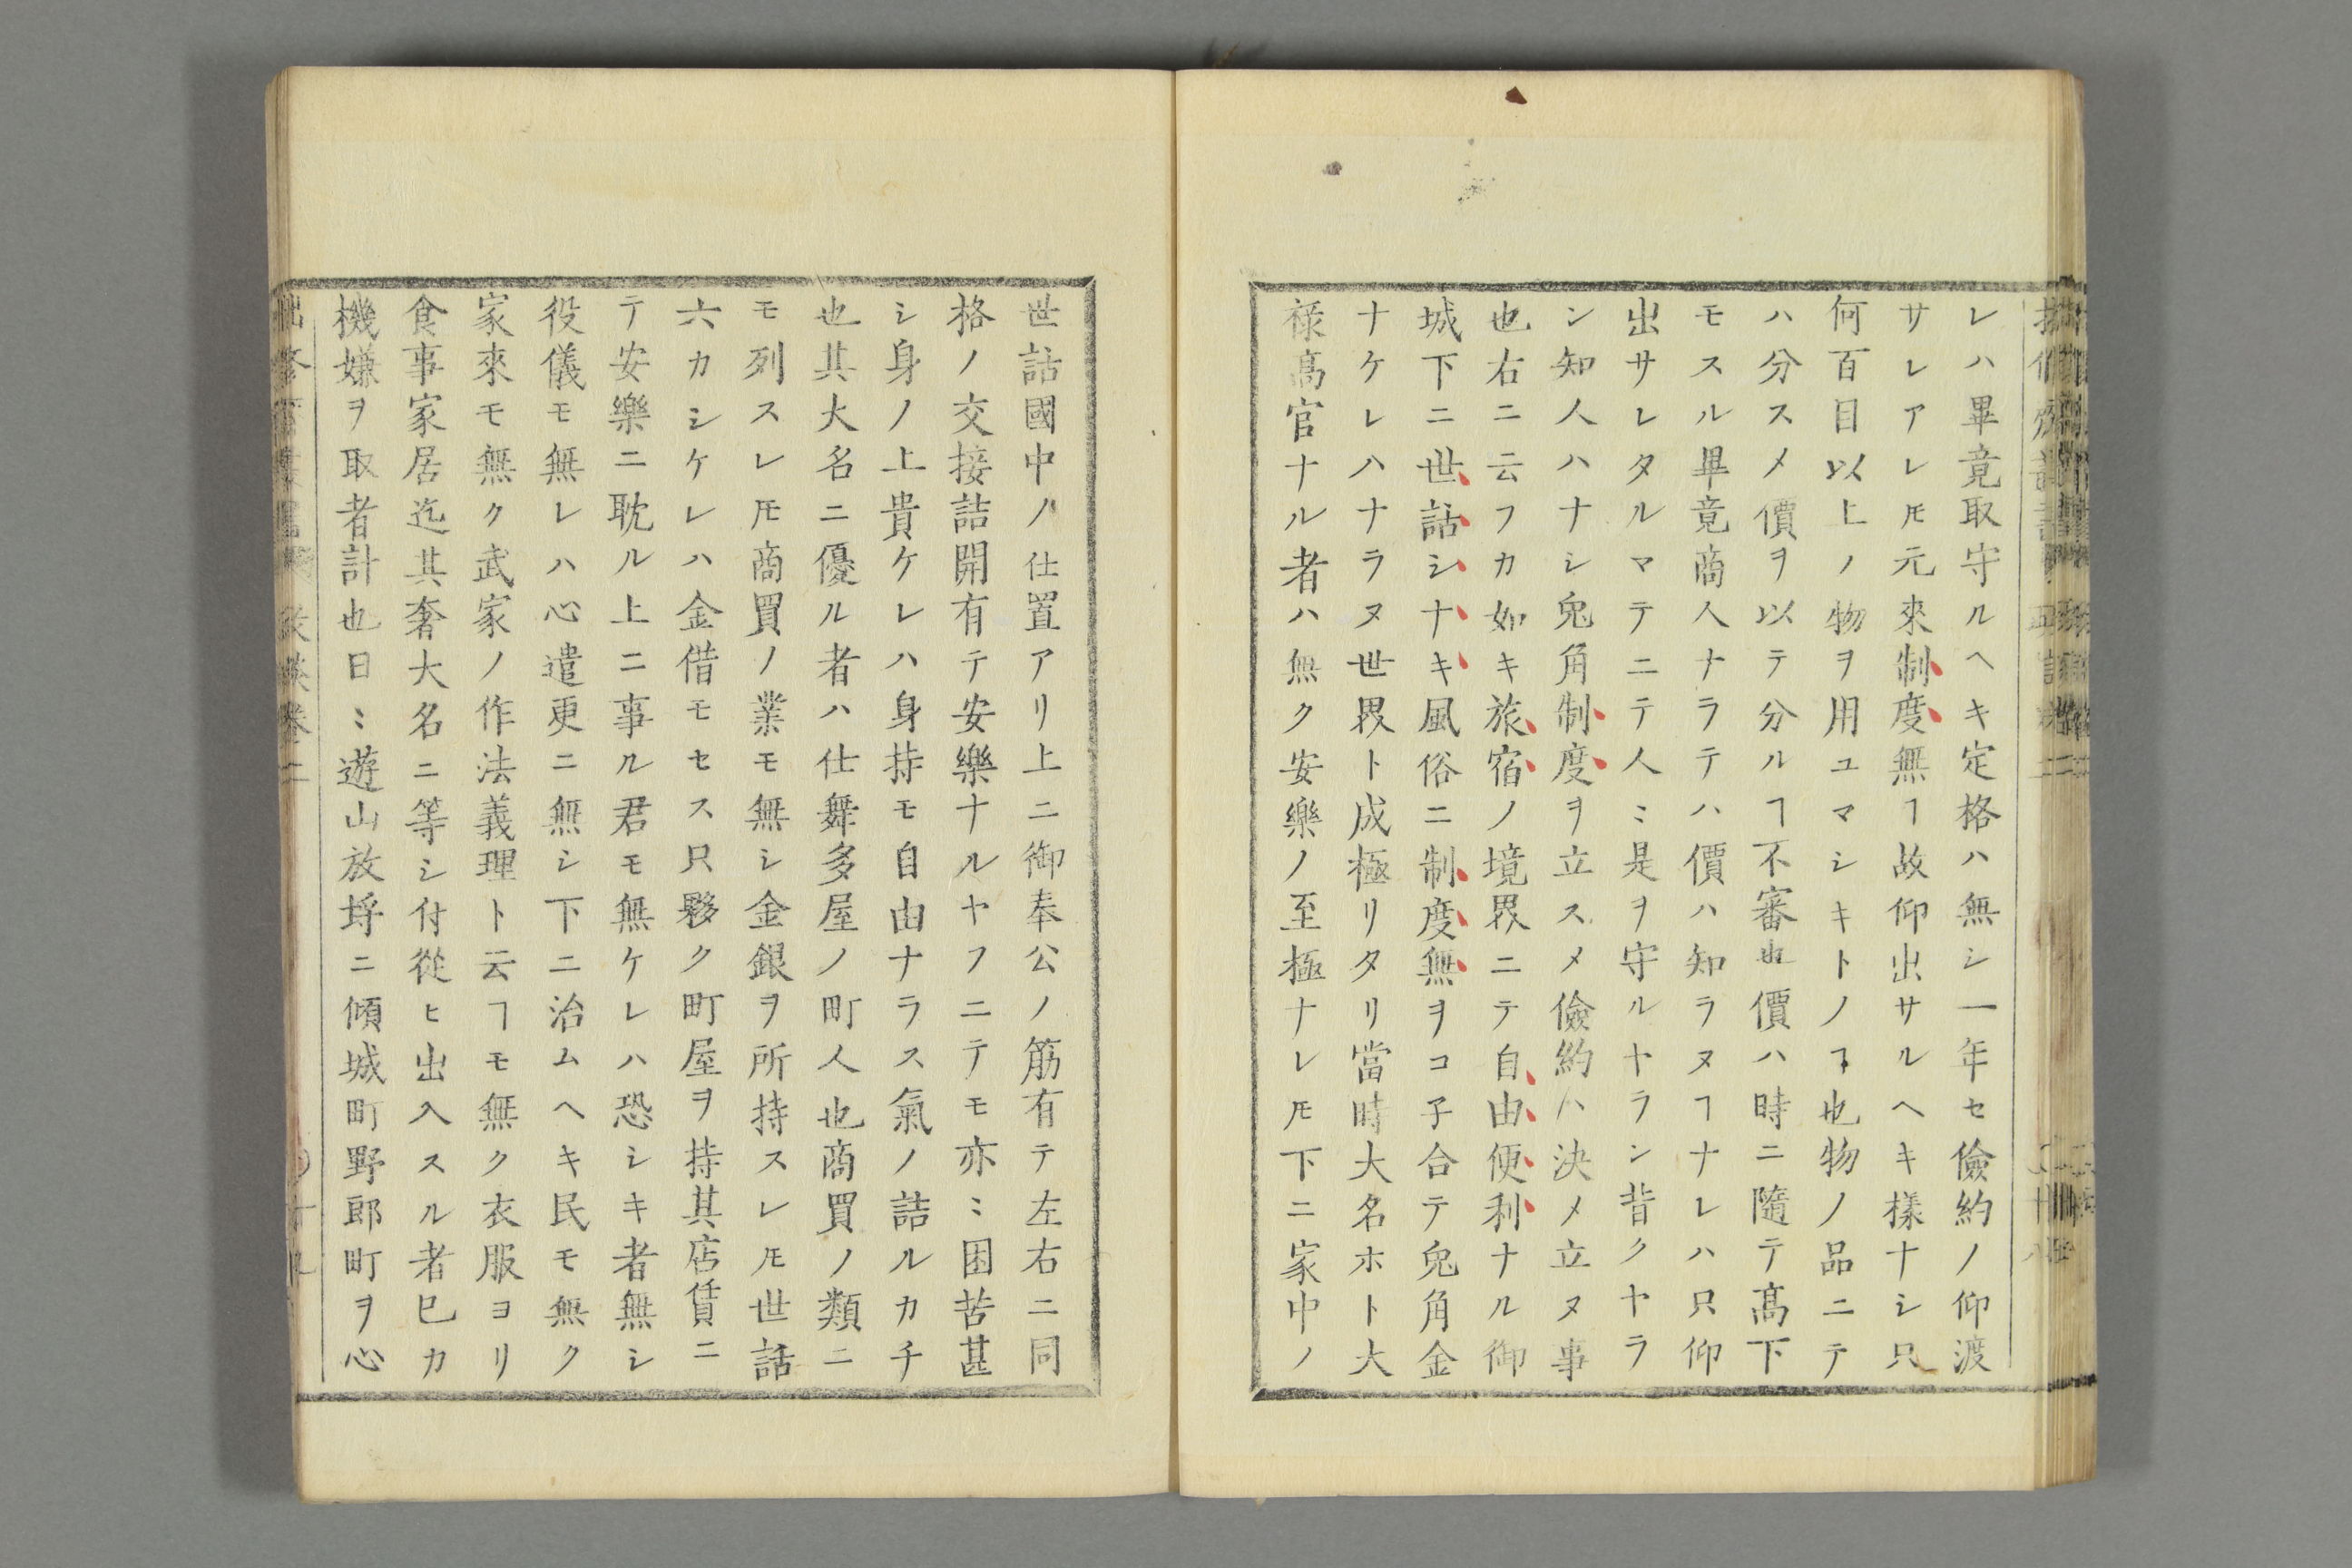 レハ畢竟取守ルヘキ定格ハ無シ一年セ儉約ノ仰渡
サレアレ𪜈元來制度無ヿ故仰出サルヘキ樣ナシ只
何百目以上ノ物ヲ用ユマシキトノヿ也物ノ品ニテ
ハ分スメ價ヲ以テ分ルヿ不審也價ハ時ニ隨テ髙下
モスル畢竟商人ナラテハ價ハ知ラヌヿナレハ只仰
出サレタルマテニテ人〻是ヲ守ルヤラン背クヤラ
ン知人ハナシ兎角制度ヲ立スメ儉約ハ決メ立ヌ事
也右ニ云フカ如キ旅宿ノ境界ニテ自由便利ナル御
城下ニ世話シナキ風俗ニ制度無ヲコ子合テ兎角金
ナケレハナラヌ世界ト成極リタリ當時大名ホト大
禄髙官ナル者ハ無ク安樂ノ至極ナレ𪜈下ニ家中ノ
世話國中ノ仕置アリ上ニ御奉公ノ筋有テ左右ニ同
格ノ交接詰開有テ安樂ナルヤフニテモ亦〻困苦甚
シ身ノ上貴ケレハ身持モ自由ナラス氣ノ詰ルカチ
也其大名ニ優ル者ハ仕舞多屋ノ町人也商買ノ類ニ
モ列スレ𪜈商買ノ業モ無シ金銀ヲ所持スレ𪜈世話
六カシケレハ金借モセス只夥ク町屋ヲ持其店賃ニ
テ安樂ニ耽ル上ニ事ル君モ無ケレハ恐シキ者無シ
役儀モ無レハ心遣更ニ無シ下ニ治ムヘキ民モ無ク
家來モ無ク武家ノ作法義理ト云ヿモ無ク衣服ヨリ
食事家居迄其奢大名ニ等シ付從ヒ出入スル者已カ
機嫌ヲ取者計也日〻遊山放埒ニ傾城町野郎町ヲ心